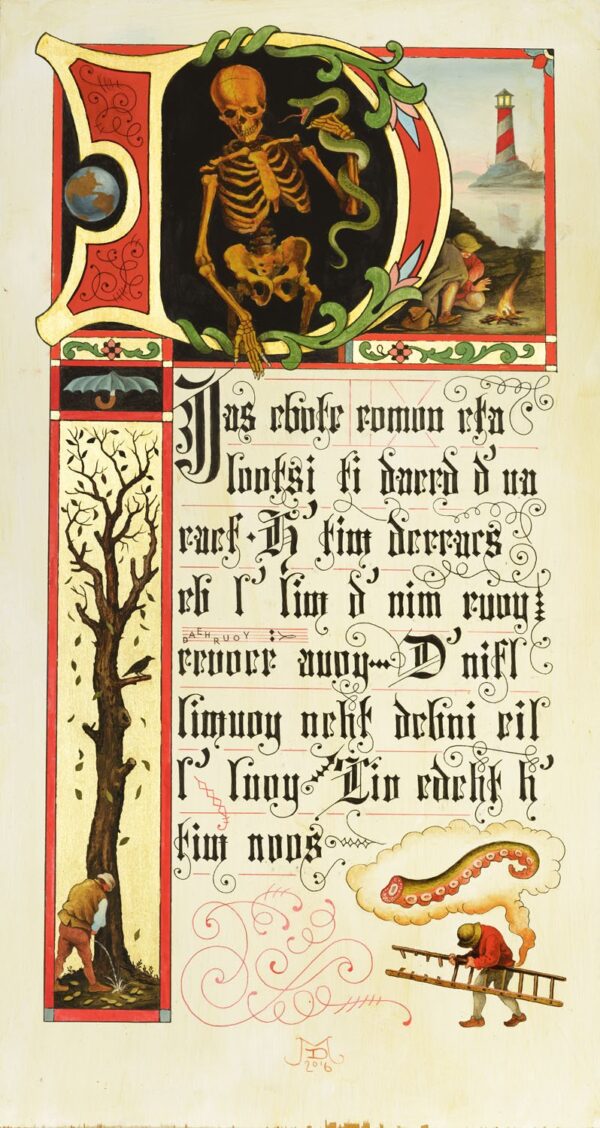 Jas ebote romon eta
lootsi ti daerd d'na
raef · H' tim derracs
eb l' lim d' nim ruoy
DAEHRUOY
revocer auoy D'nifl
limuoy neht debni eil
l' luoy Lio edeht h'
tim noos
MD
2016